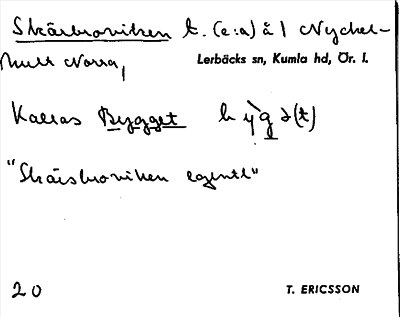 Skärbroviken t. (e:a) å 1 Nyckel-
hult Norra,
Lerbäcks sn, Kumla hd, Ör. l.
Kallas Bygget
"Skärsbroviken egentl"
20
T. ERICSSON